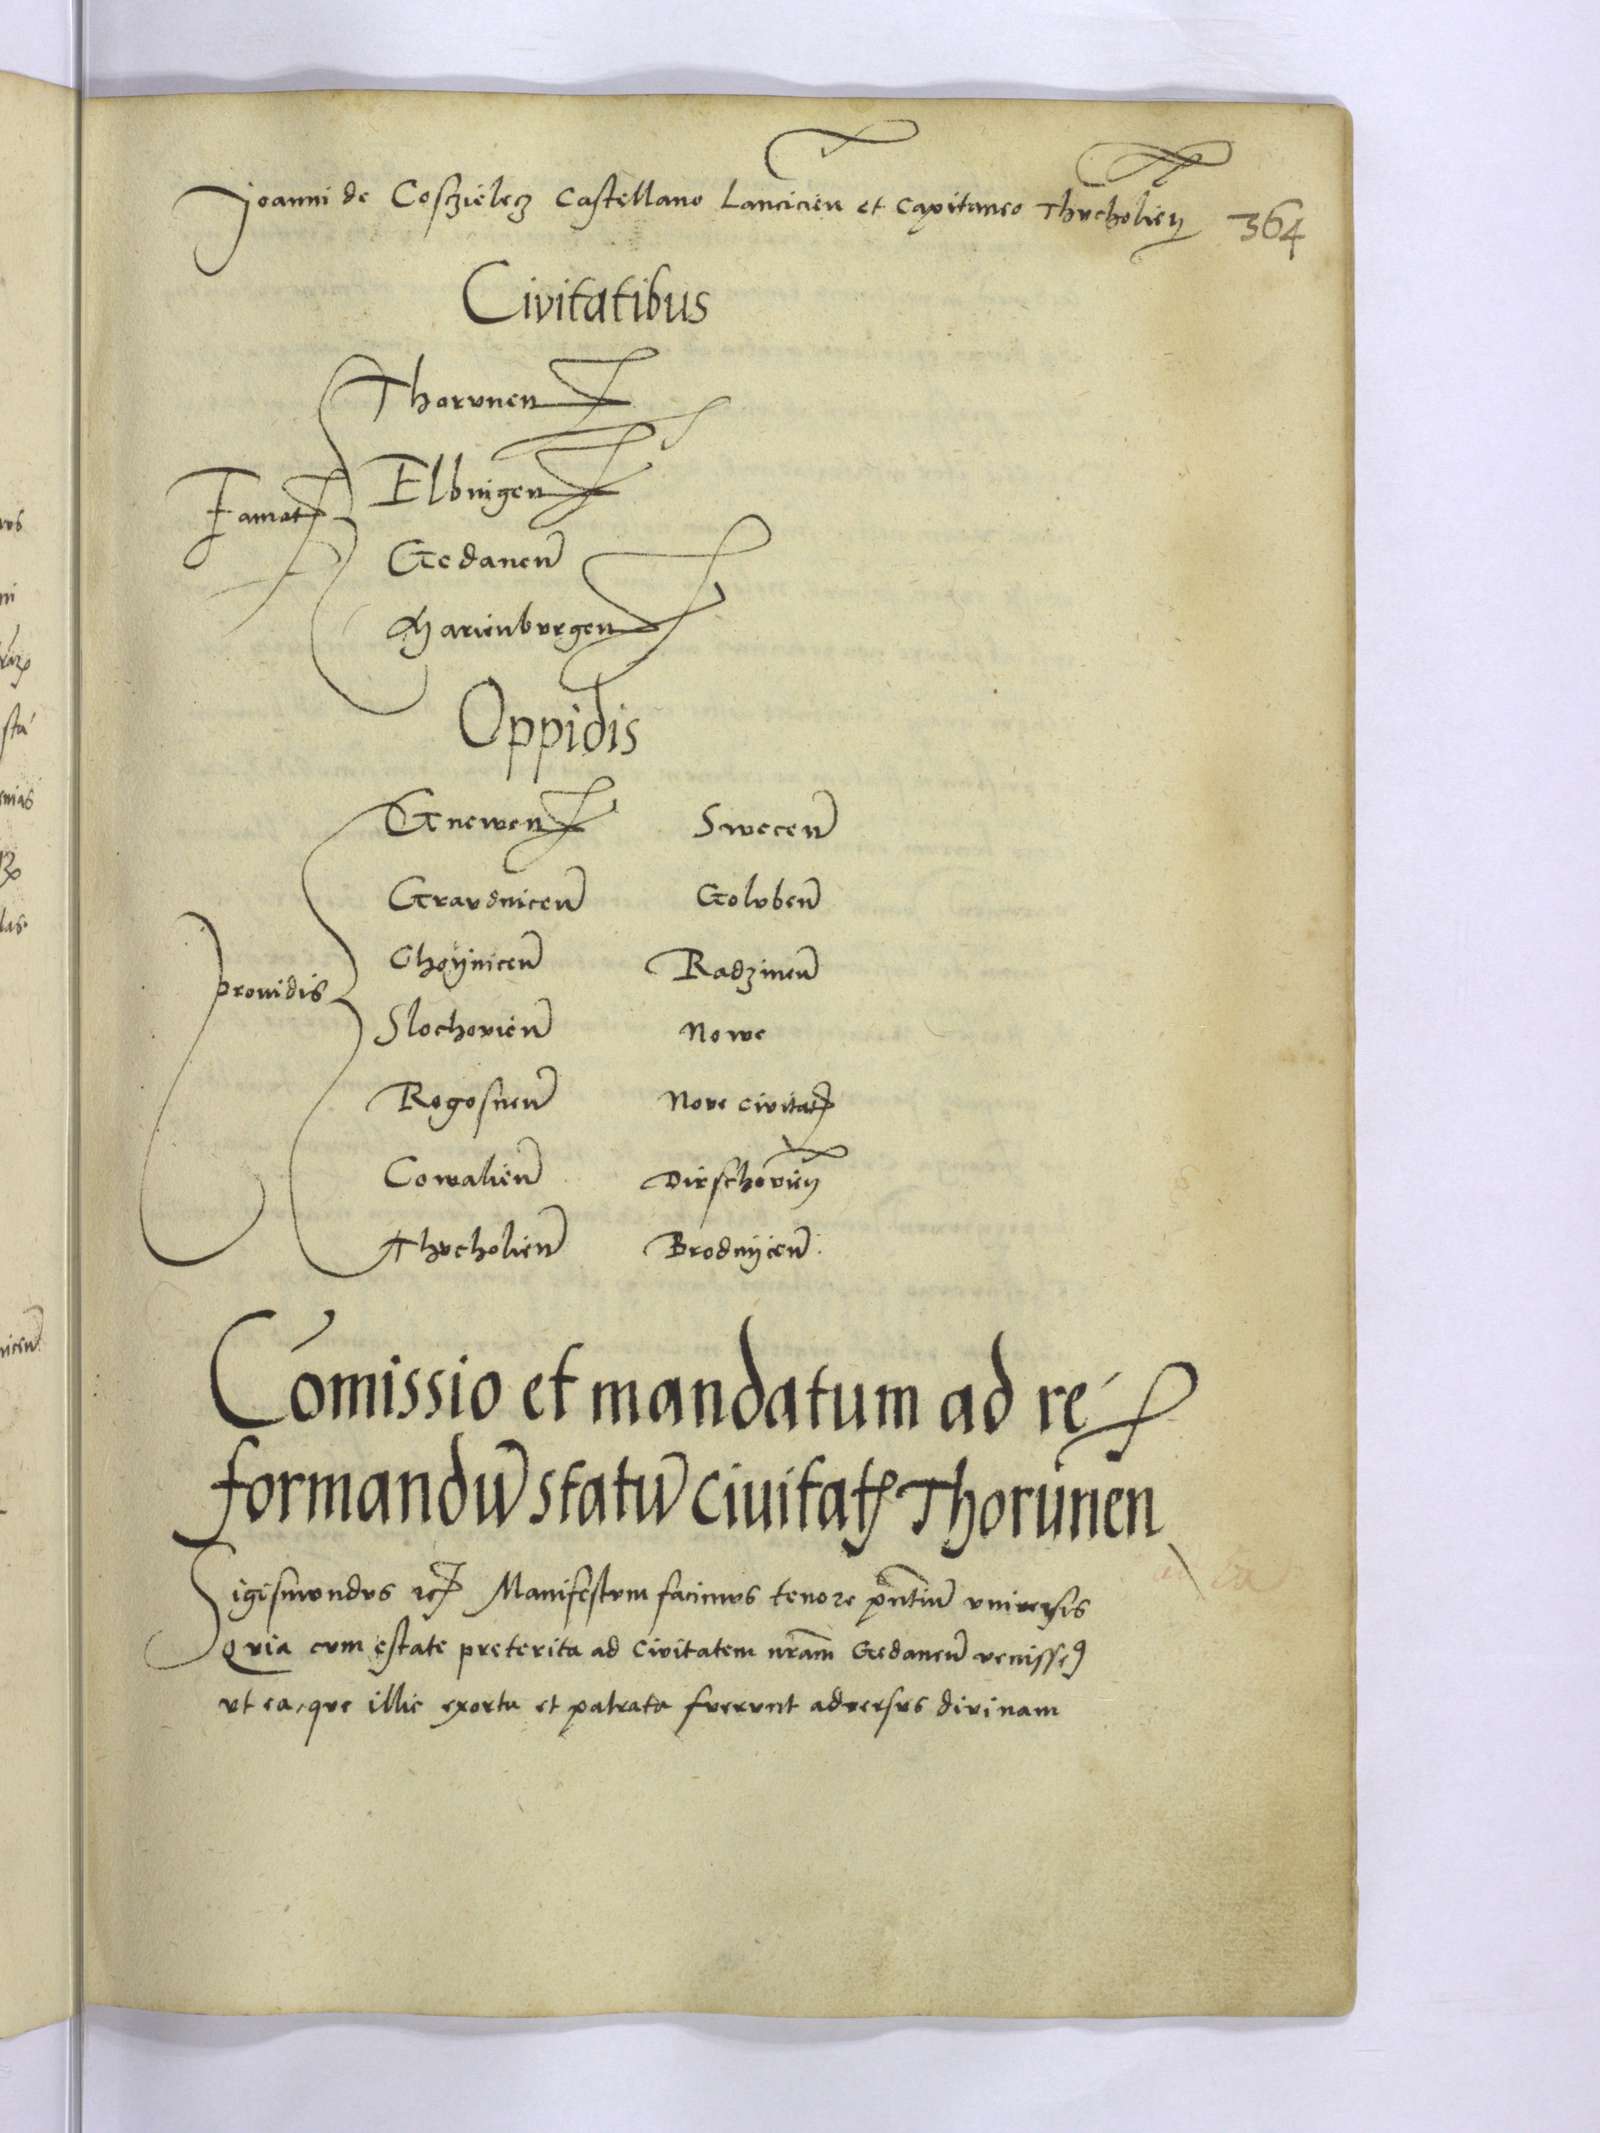 Joanni de Cosczielecz Castellano Lancicien et Capitaneo Thucholien 364
Civitatibus
Famat
Thorunen
Elbingen
Gedanen
Marienburgen
Oppidis
prouidis
Gnewen Swecen
Graudnicen Goluben
Choÿnicen Radzinen
Slochovien Nowe
Rogosnen Nove civitat
Cowalien Dirschovien
Thucholien Brodnÿcen
Comissio et mandatum ad re
formandu statu ciuitat Thorunen
Sigismundus etc Manifestum facimus tenore pntiu universis
Quia cum estate preterita ad Civitatem nram Gedanen venissem
ut ea, que illic exorta et patrata fuerunt adversus divinam